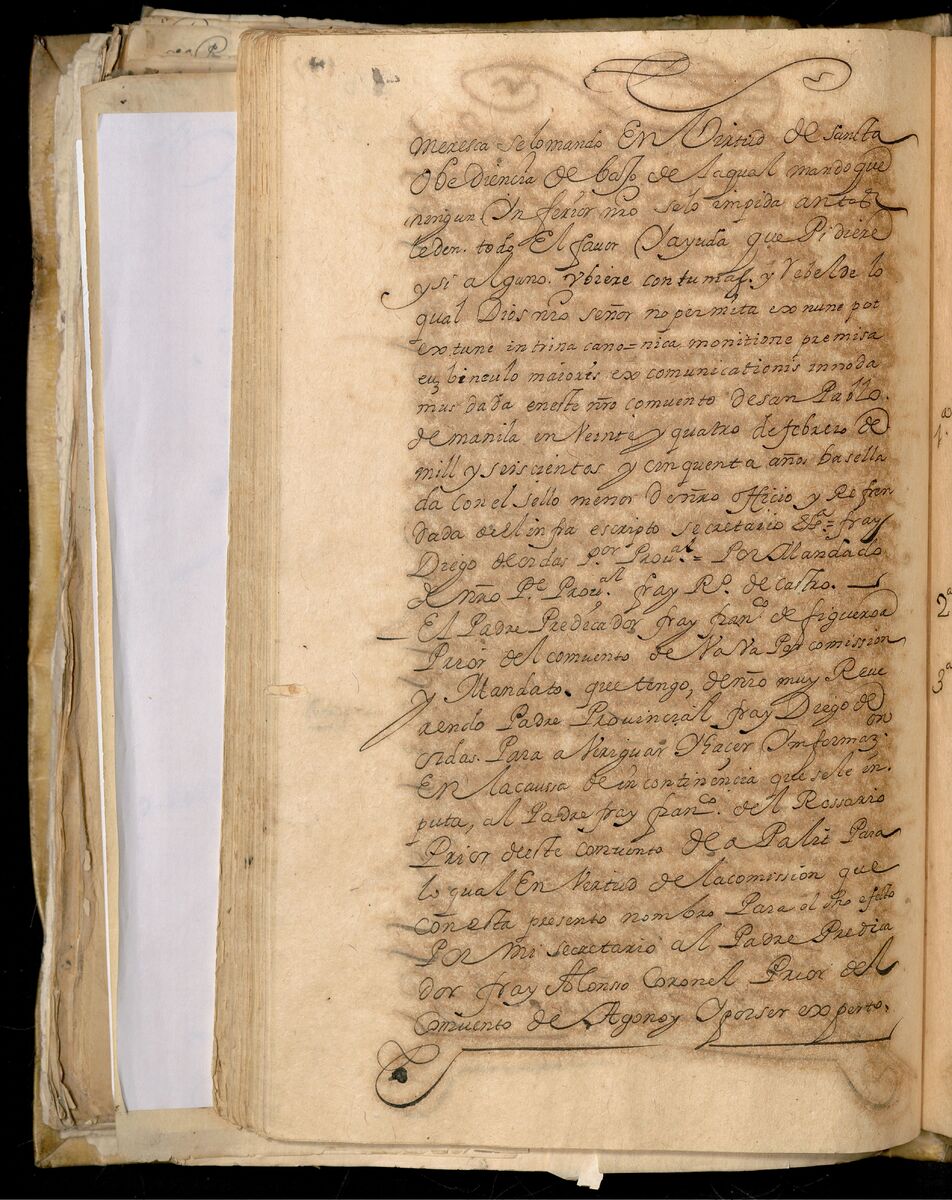 meresca se lo mando En Virtud de sancta
Obediencia de baJo de laqual mando que
ningun Inferior nro selo impida antes
leden. todo El favor Y ayuda que Pidiere
y si alguno. Vbiere contumaz. y Rebelde lo
qual Dios nro señor no permita ex nunc pot
ex tunc in trina cano=nica monitione premisa
eu binculo maioris excomunicationis innoda
mus dada en este nro comuento de san Pablo.
de manila en Veinte y quatro de febrero de
mill y seiscientos y cinquenta años ba sella
da con el sello menor de nro officio y Refren
dada del infra escripto secretario = fray
Diego de ordas P.or Prou.al = Por Mandado
de nro P.e Prou.al fray R.o de castro.
El Padre Predicador fray fran.co de figueroa
Prior del comuento de NaVa Por comission
y Mandato. que tengo, de nro muy Reue
rendo Padre Provincial fray Diego de
ordas. Para aVeriguar Y hacer Ynformaz.on
En la caussa de incontinencia que sele in
puta, al Padre fray fran.co del Rossario
Prior deeste comuento de o Palit Para
lo qual En Vertud de la comission que
con esta presento nombro Para el dho efecto
Por mi secretario al Padre Predica
dor fray Alonso Coronel Prior del
Comuento de Agonoy Y por ser experto.
1.
2a
3a